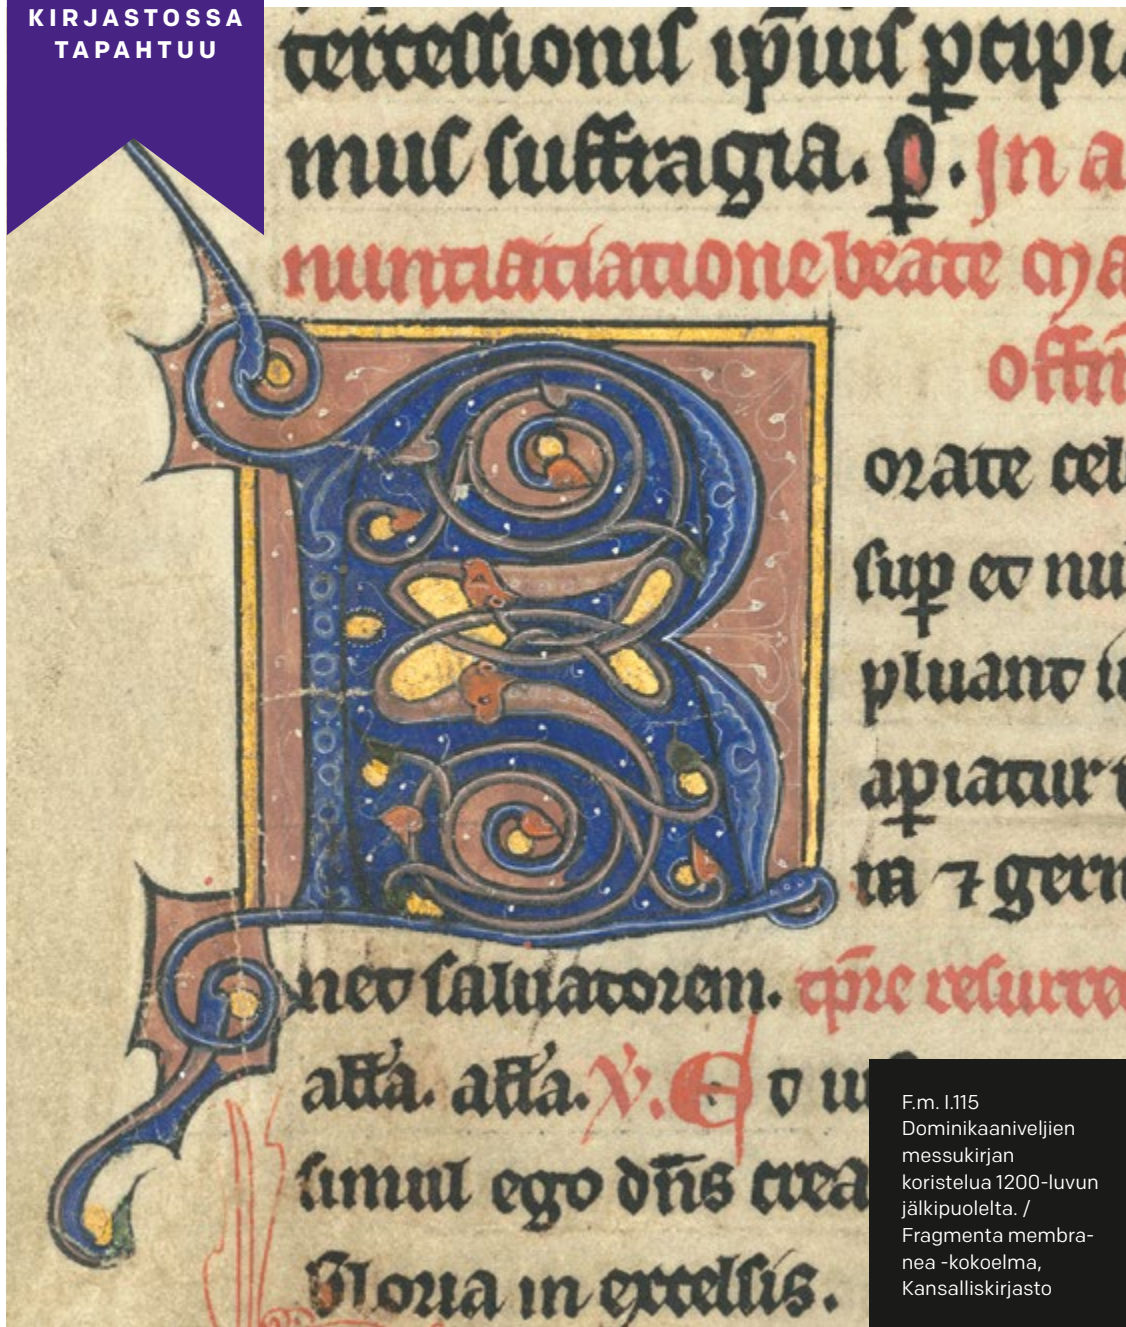 KIRJASTOSSA
TAPAHTUU
tercessionis ip̄ius ꝑcipi
mus suffragia. ꝑ. In a
nuntiatiatione beate Ma
offm̄
orate cel
suꝑ et nu
pluant
aꝑiatur t
ra ⁊ germ
net saluatorem. tp̄re resurre
alła. alła. ℣. Et iu
simul ego dn̄s crea
Gloria in excelsis.
F.m. I.115
Dominikaaniveljien
messukirjan
koristelua 1200-luvun
jälkipuolelta. /
Fragmenta membra-
nea -kokoelma,
Kansalliskirjasto